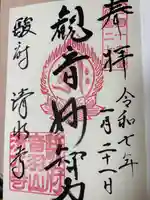 奉拝
令和七年
一月二十一日
観音妙智力
駿府 清水寺